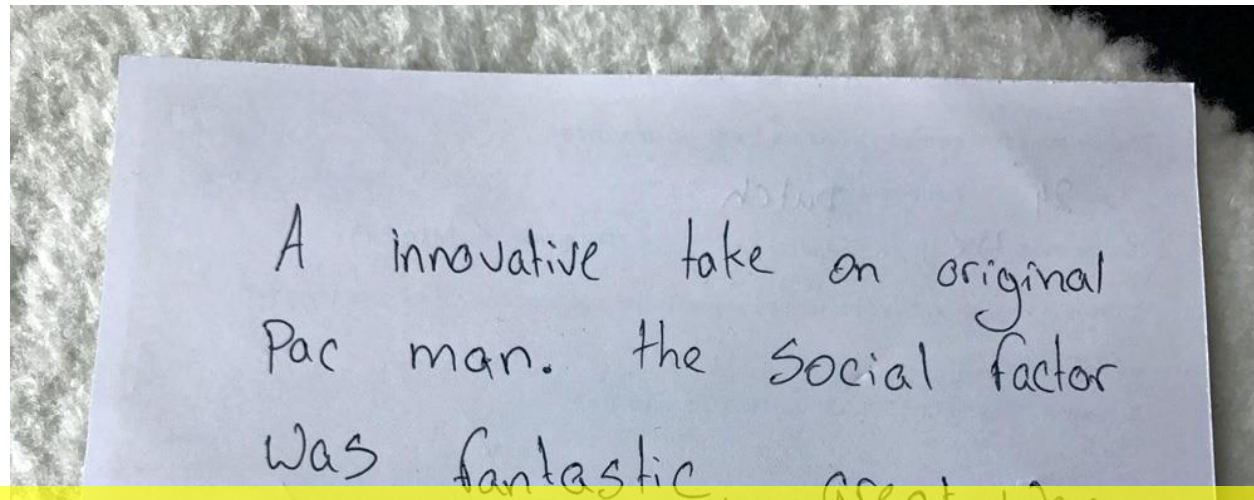 A innovative take on original
Pac man. the social factor
was fantastic. great